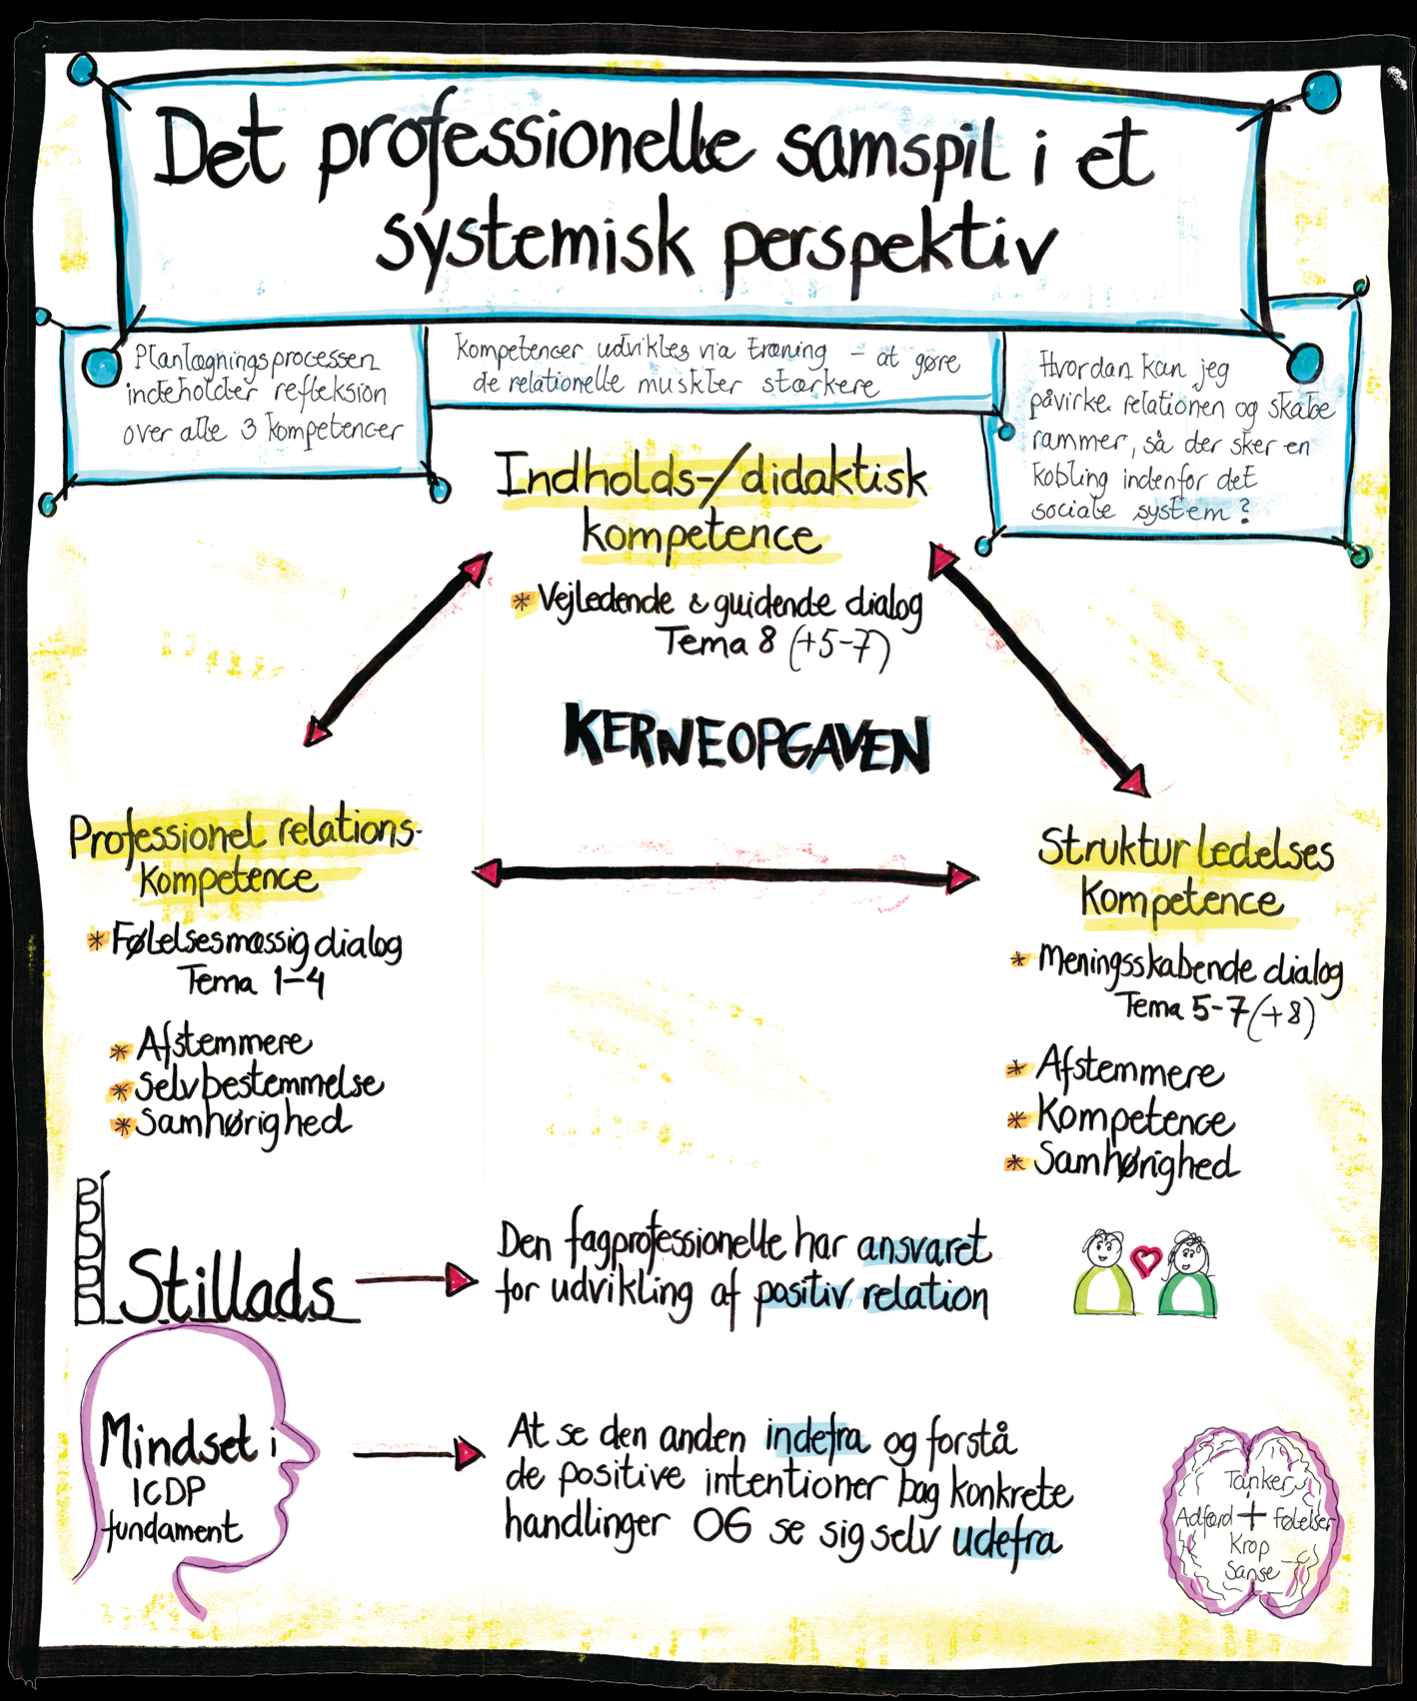 Det professionelle samspil i et
systemisk perspektiv
Planlægningsprocessen
indeholder refleksion
over alle 3 kompetencer
Kompetencer udvikles via træning – at gøre
de relationelle muskler stærkere
Hvordan kan jeg
påvirke relationen og skabe
rammer, så der sker en
kobling indenfor det
sociale system?
Indholds-/didaktisk
kompetence
* Vejledende & guidende dialog
Tema 8 (+5-7)
KERNEOPGAVEN
Professionel relations-
kompetence
* Følelsesmæssig dialog
Tema 1-4
* Afstemmere
* Selvbestemmelse
* Samhørighed
Struktur ledelses
Kompetence
* Meningsskabende dialog
Tema 5-7 (+8)
* Afstemmere
* Kompetence
* Samhørighed
Stillads
Den fagprofessionelle har ansvaret
for udvikling af positiv relation
Mindset i
ICDP
fundament
At se den anden indefra og forstå
de positive intentioner bag konkrete
handlinger OG se sig selv udefra
Tanker
Adfærd + Følelser
Krop
Sanse